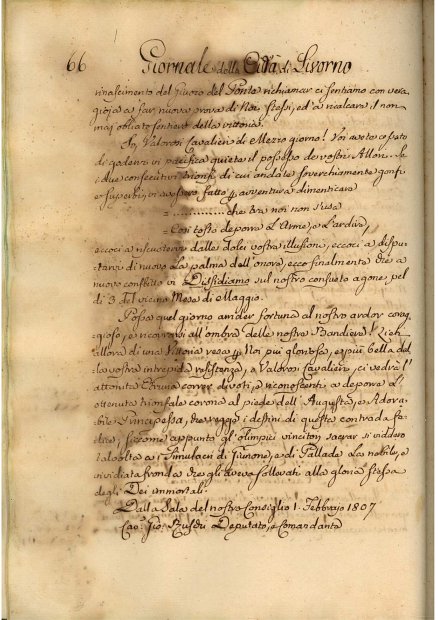 66 Giornale della Città di Livorno
rinascimento del Giuoco del Ponte richiamar ci sentiamo con vera
gioja a far nuova prova di Noi stessi, ed a ricalcare il non
mai obliato sentiero della vittoria.
Sì, Valorosi Cavalieri di Mezzo giorno! Voi avete cessato
di godervi in pacifica quiete il possesso de vostri Allori. Se
i due consecutivi trionfi di cui andate soverchiamente gonfi
e superbi, vi avessero fatto p avventura dimenticare
= ............ che tra noi non s'usa
= Così tosto deporre l'Arme, e l'ardire,
eccoci a riscuotervi dalle dolci vostre illusioni, eccoci a dispu=
tarvi di nuovo la palma dell'onore, ecco finalmente che a
nuovo conflitto vi Disfidiamo sul nostro consueto agone pel
dì 3 del vicino Mese di Maggio.
Possa quel giorno arrider fortuna al nostro ardor corag=
gioso, e ricovrarvi all'ombra delle nostre Bandiere!
allora di una Vittoria resa p Noi più gloriosa, e più bella dal=
la vostra intrepida resistenza, o Valorosi Cavalieri, ci vedrà l'
attonita Etruria correr divoti, e riconoscenti a deporre l'
ottenuta trionfale corona al piede dell'Augusta, e Adora=
bile Principessa, che regge i destini di questa contrada fe=
lice, siccome appunto gl'olimpici vincitori sacrar si viddero
talvolta a i Simulacri di Giunone, e di Pallade la nobile, e
invidiata fronda che gli aveva sollevati alla gloria stessa
degli Dei immortali.
Dalla Sala del nostro Consiglio 1. Febbrajo 1807
Cav: Gio: Deputato, e Comandante